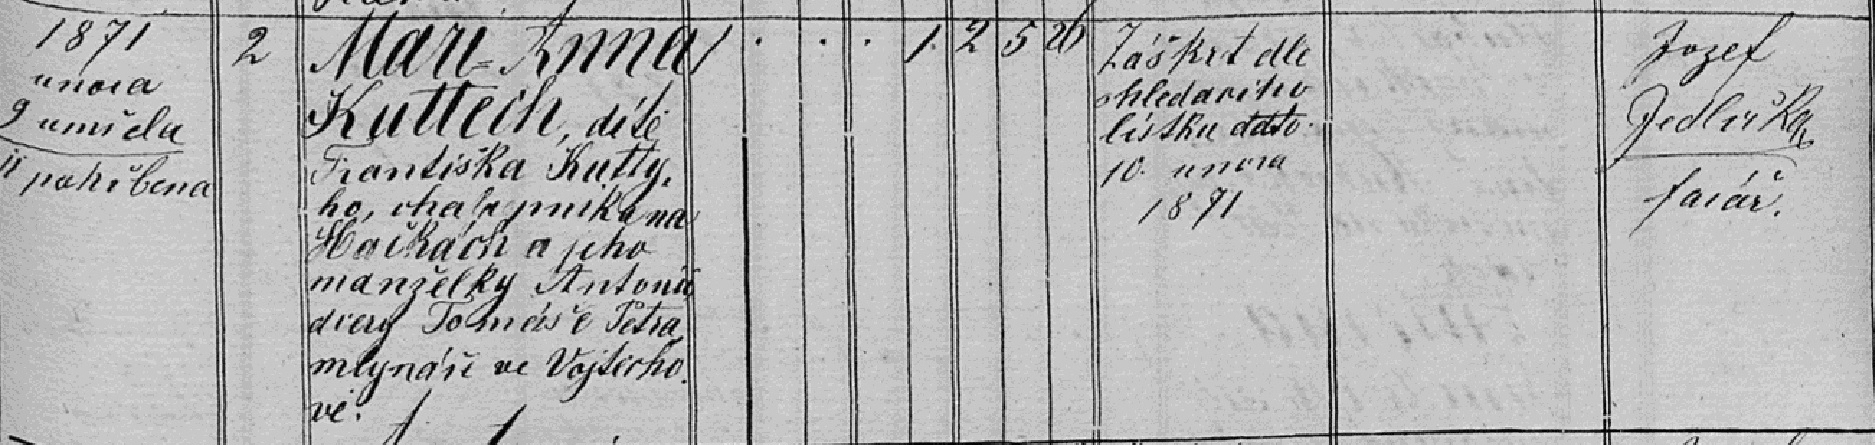 1871
února
9 umřela
11 pohřbena
2
Mari-Anna
Kuttech, dítě
Františka Kutty-
ho, chalupníka na
Hačkách a jeho
manželky Antonie
dcery Tomáše Petra,
mlynáře ve Vojtěcho-
vě.
1 . . . 1 2 5 26
Záškrt dle
ohledacího
lístku ddto
10. února
1871
Jozef
Jedlička
farář.